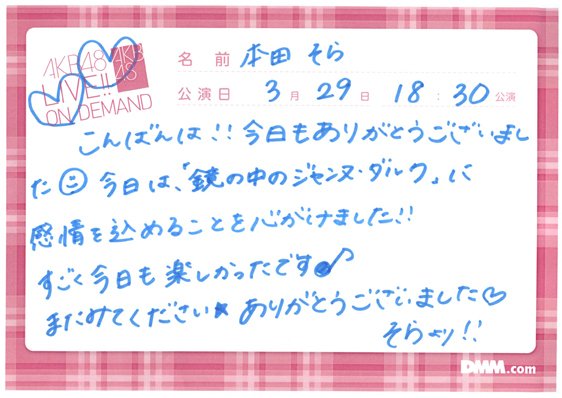 AKB48
LIVE!!
ON DEMAND
AKB
48
名前 本田 そら
公演日 3月29日 18:30公演
こんばんは!!今日もありがとうございまし
た☺今日は、「鏡の中のジャンヌ・ダルク」に
感情を込めることを心がけました!!
すごく今日も楽しかったです♪
またみてください★ありがとうございました♡
そらより!!
DMM.com